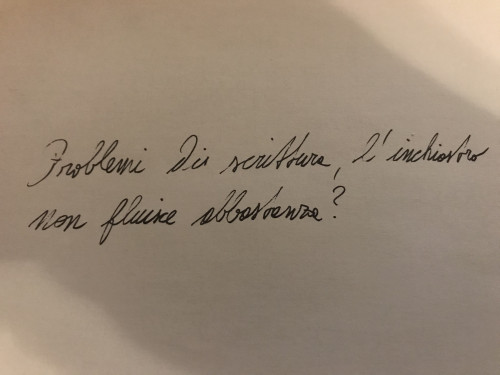 Problemi di scrittura, L'inchiostro
non fluisce abbastanza?